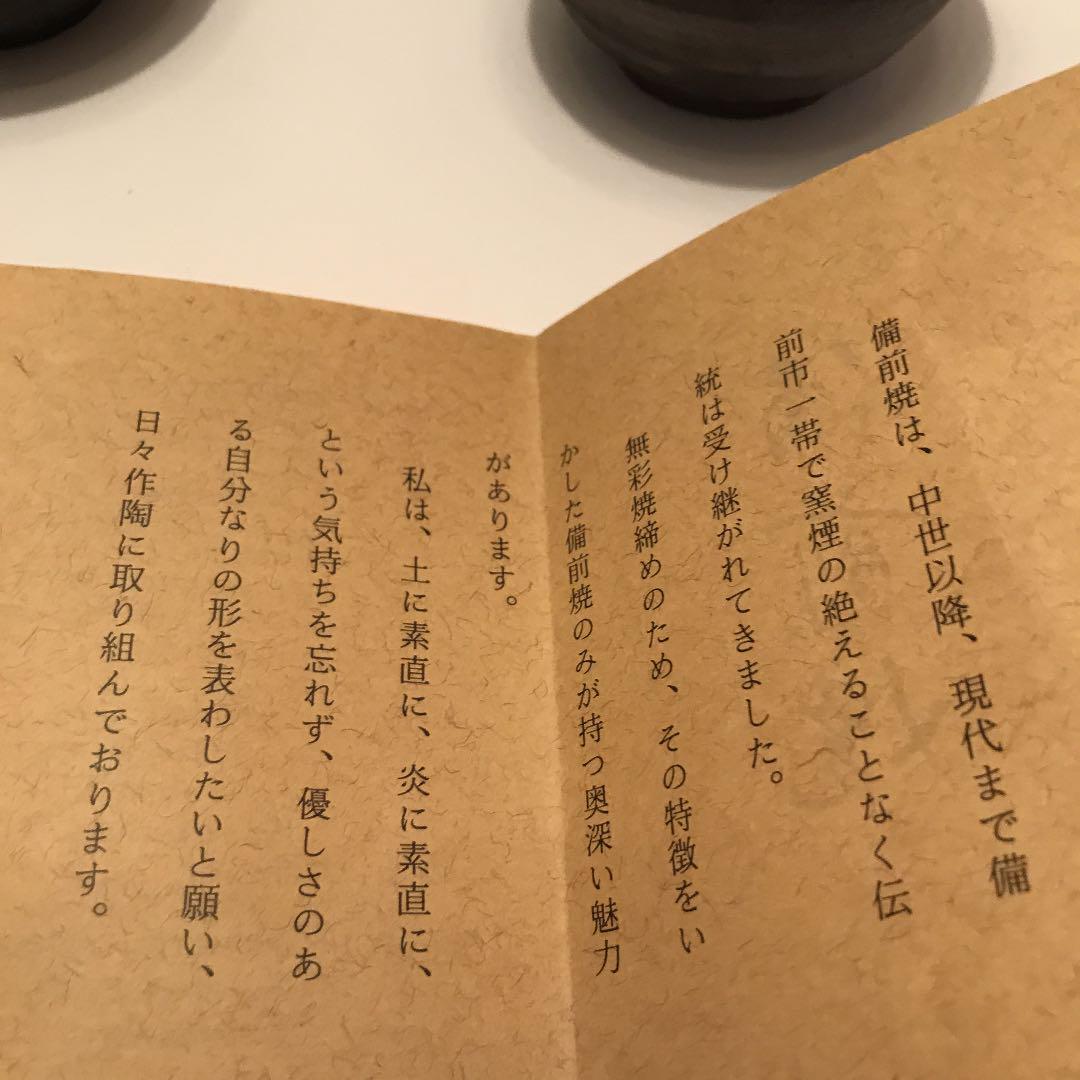 備前焼は、中世以降、現代まで備
前市一帯で窯煙の絶えることなく伝
統は受け継がれてきました。
無彩焼締めのため、その特徴をい
かした備前焼のみが持つ奥深い魅力
があります。
私は、土に素直に、炎に素直に、
という気持ちを忘れず、優しさのあ
る自分なりの形を表わしたいと願い、
日々作陶に取り組んでおります。